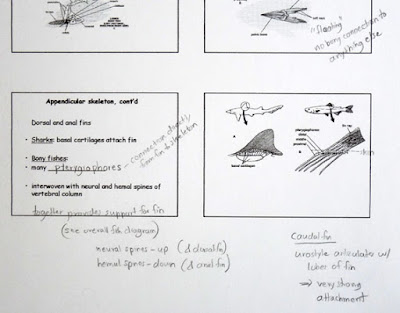 "floating"
no bony connection to
anything else
Appendicular skeleton, cont'd
Dorsal and anal fins
• Sharks: basal cartilages attach fin
• Bony fishes:
• many pterygiophores - connection directly
from fin to skeleton
• interwoven with neural and hemal spines of
vertebral column
together provides support for fin
(see overall fish diagram)
neural spines - up (& dorsal fin)
hemal spines - down (& anal fin)
A
B
basal cartilages
fin ray
pterygiophores
distal
middle
proximal
skin
Caudal fin
urostyle articulates w/
lobes of fin
→ very strong
attachment